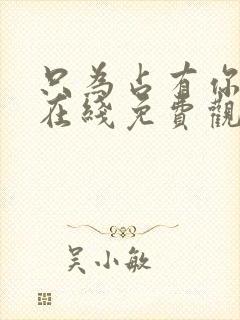 只为占有你
在綫免費觀
吴小敏